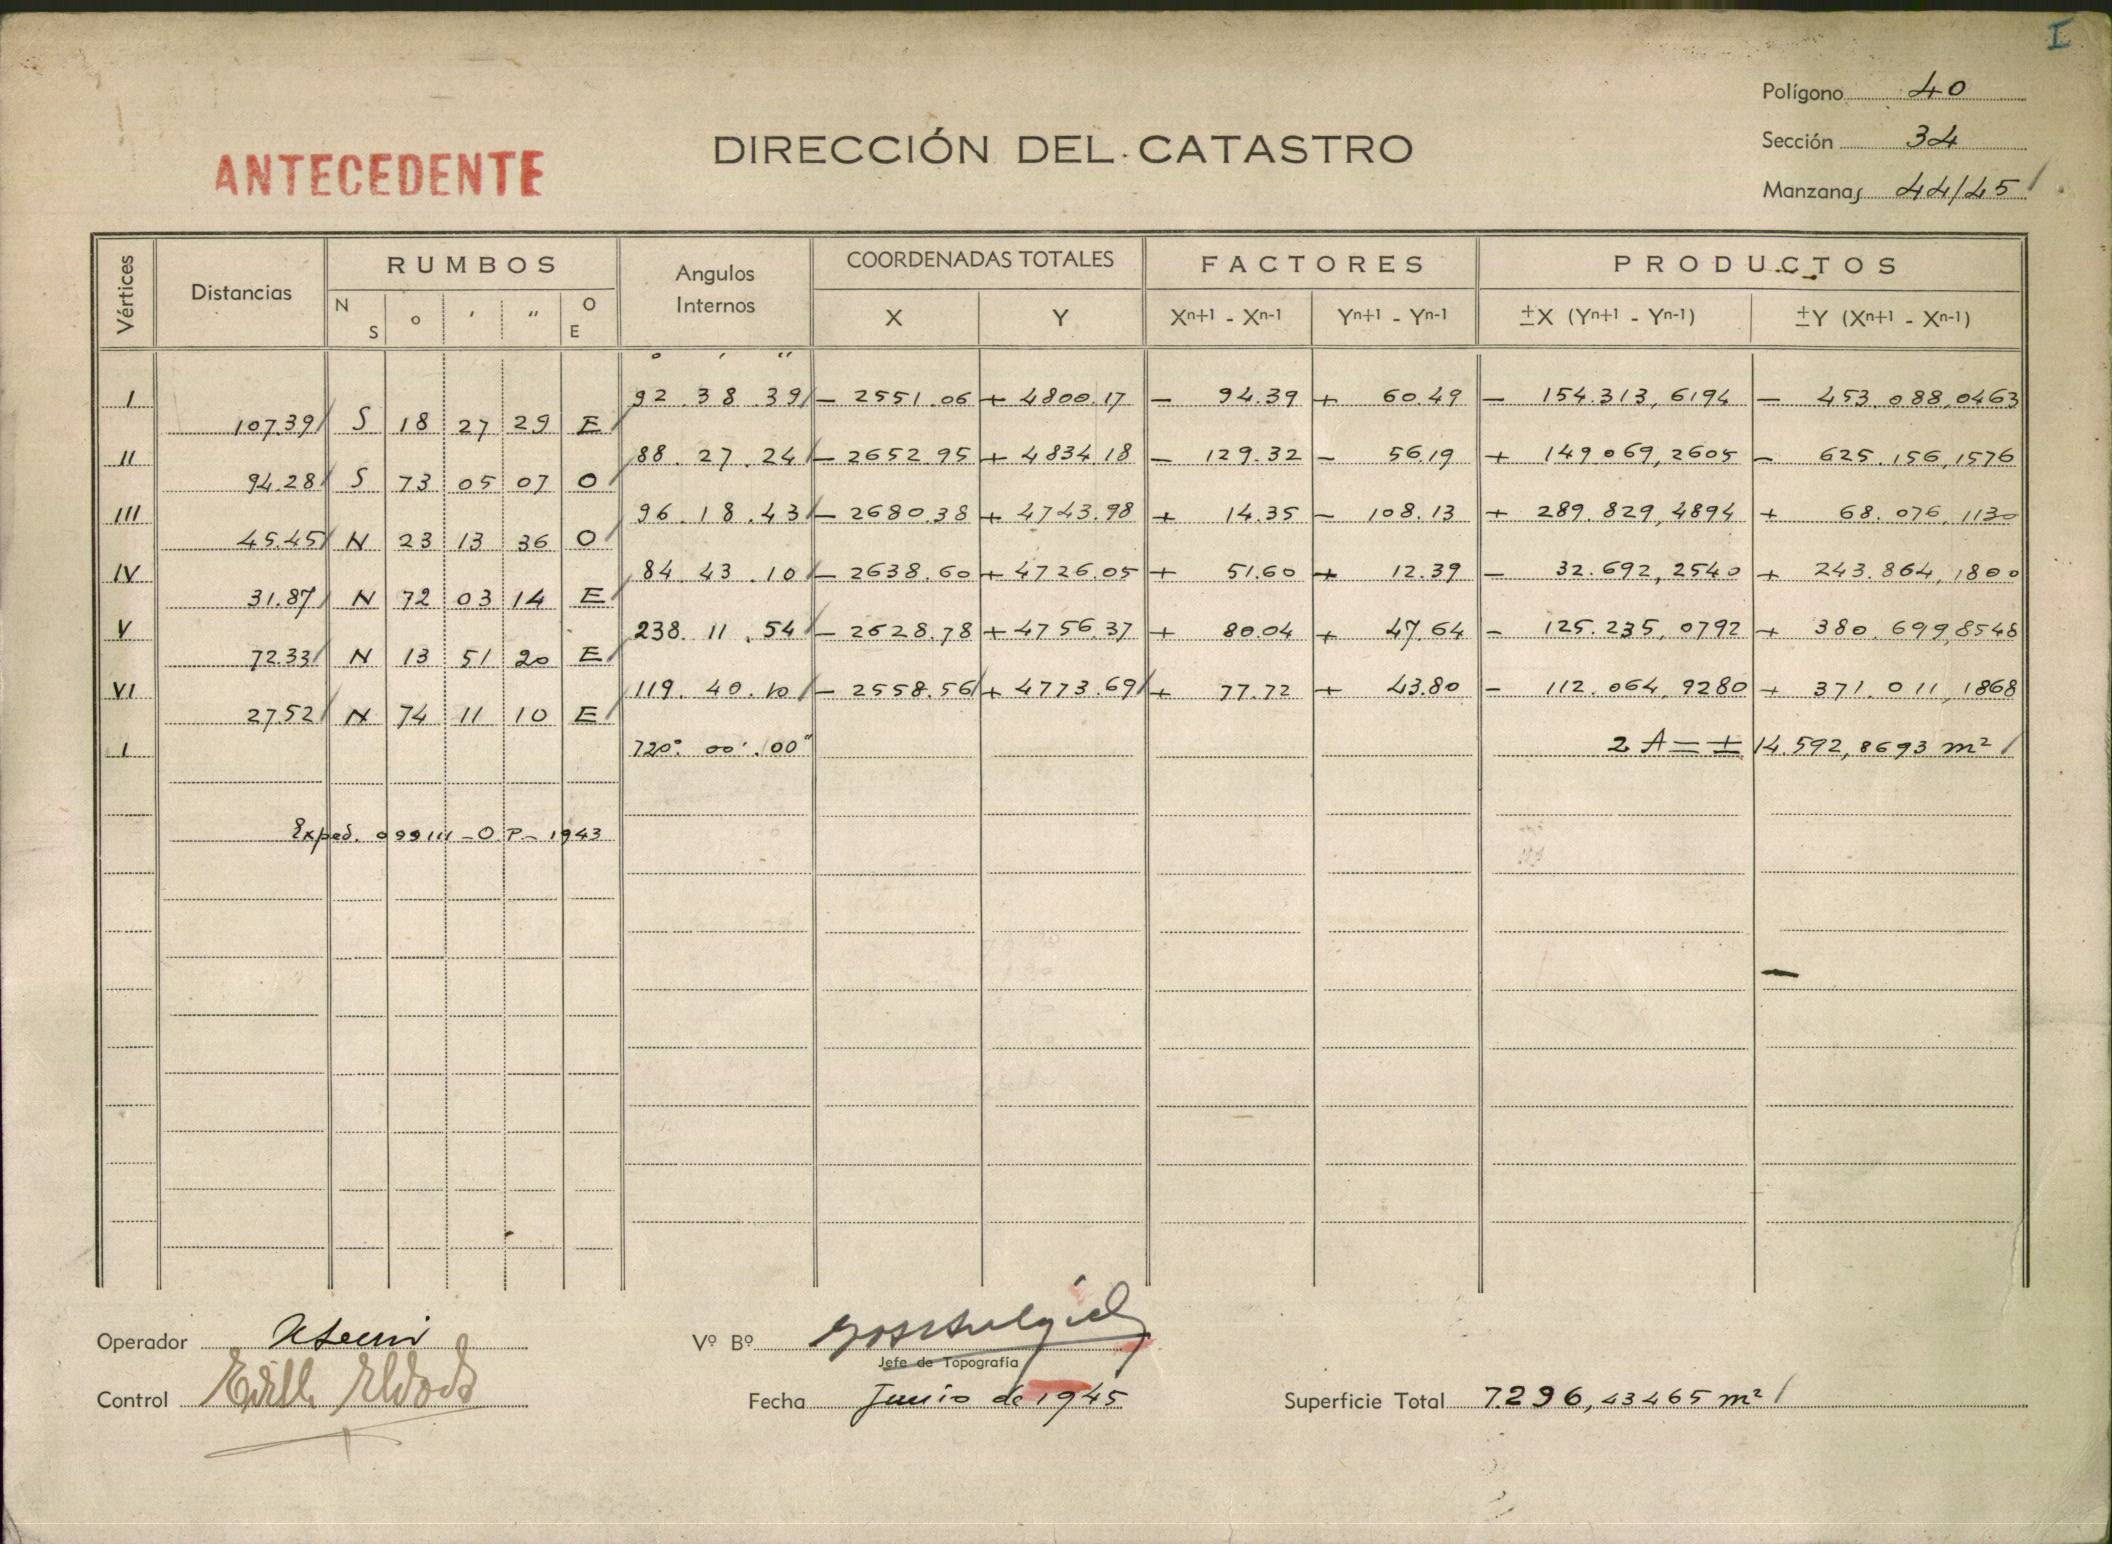 I
Polígono 40
DIRECCIÓN DEL CATASTRO
Sección 34
ANTECEDENTE
Manzanas 44/45
Vértices Distancias RUMBOS Angulos Internos COORDENADAS TOTALES FACTORES PRODUCTOS
N S o ' " O E X Y Xn+1 - Xn-1 Yn+1 - Yn-1 ±X (Yn+1 - Yn-1) ±Y (Xn+1 - Xn-1)
o ' "
I 92.38.39 - 2551.06 + 4800.17 - 94.39 + 60.49 - 154.313,6194 - 453.088,0463
107.39 S 18 27 29 E
II 88.27.24 - 2652.95 + 4834.18 - 129.32 - 56.19 + 149.069,2605 - 625.156,1576
94.28 S 73 05 07 O
III 96.18.43 - 2680.38 + 4743.98 + 14.35 - 108.13 + 289.829,4894 + 68.076,1130
45.45 N 23 13 36 O
IV 84.43.10 - 2638.60 + 4726.05 + 51.60 + 12.39 - 32.692,2540 + 243.864,1800
31.87 N 72 03 14 E
V 238.11.54 - 2628.78 + 4756.37 + 80.04 + 47.64 - 125.235,0792 + 380.699,8548
72.33 N 13 51 20 E
VI 119.40.10 - 2558.56 + 4773.69 + 77.72 + 43.80 - 112.064,9280 + 371.011,1868
27.52 N 74 11 10 E
I 720°.00'.00" 2 A = ± 14.592,8693 m²
Exped. 099111 - O.P - 1943
Operador
Vº Bº
Jefe de Topografía
Control
Fecha Junio de 1945
Superficie Total 7.296,43465 m²